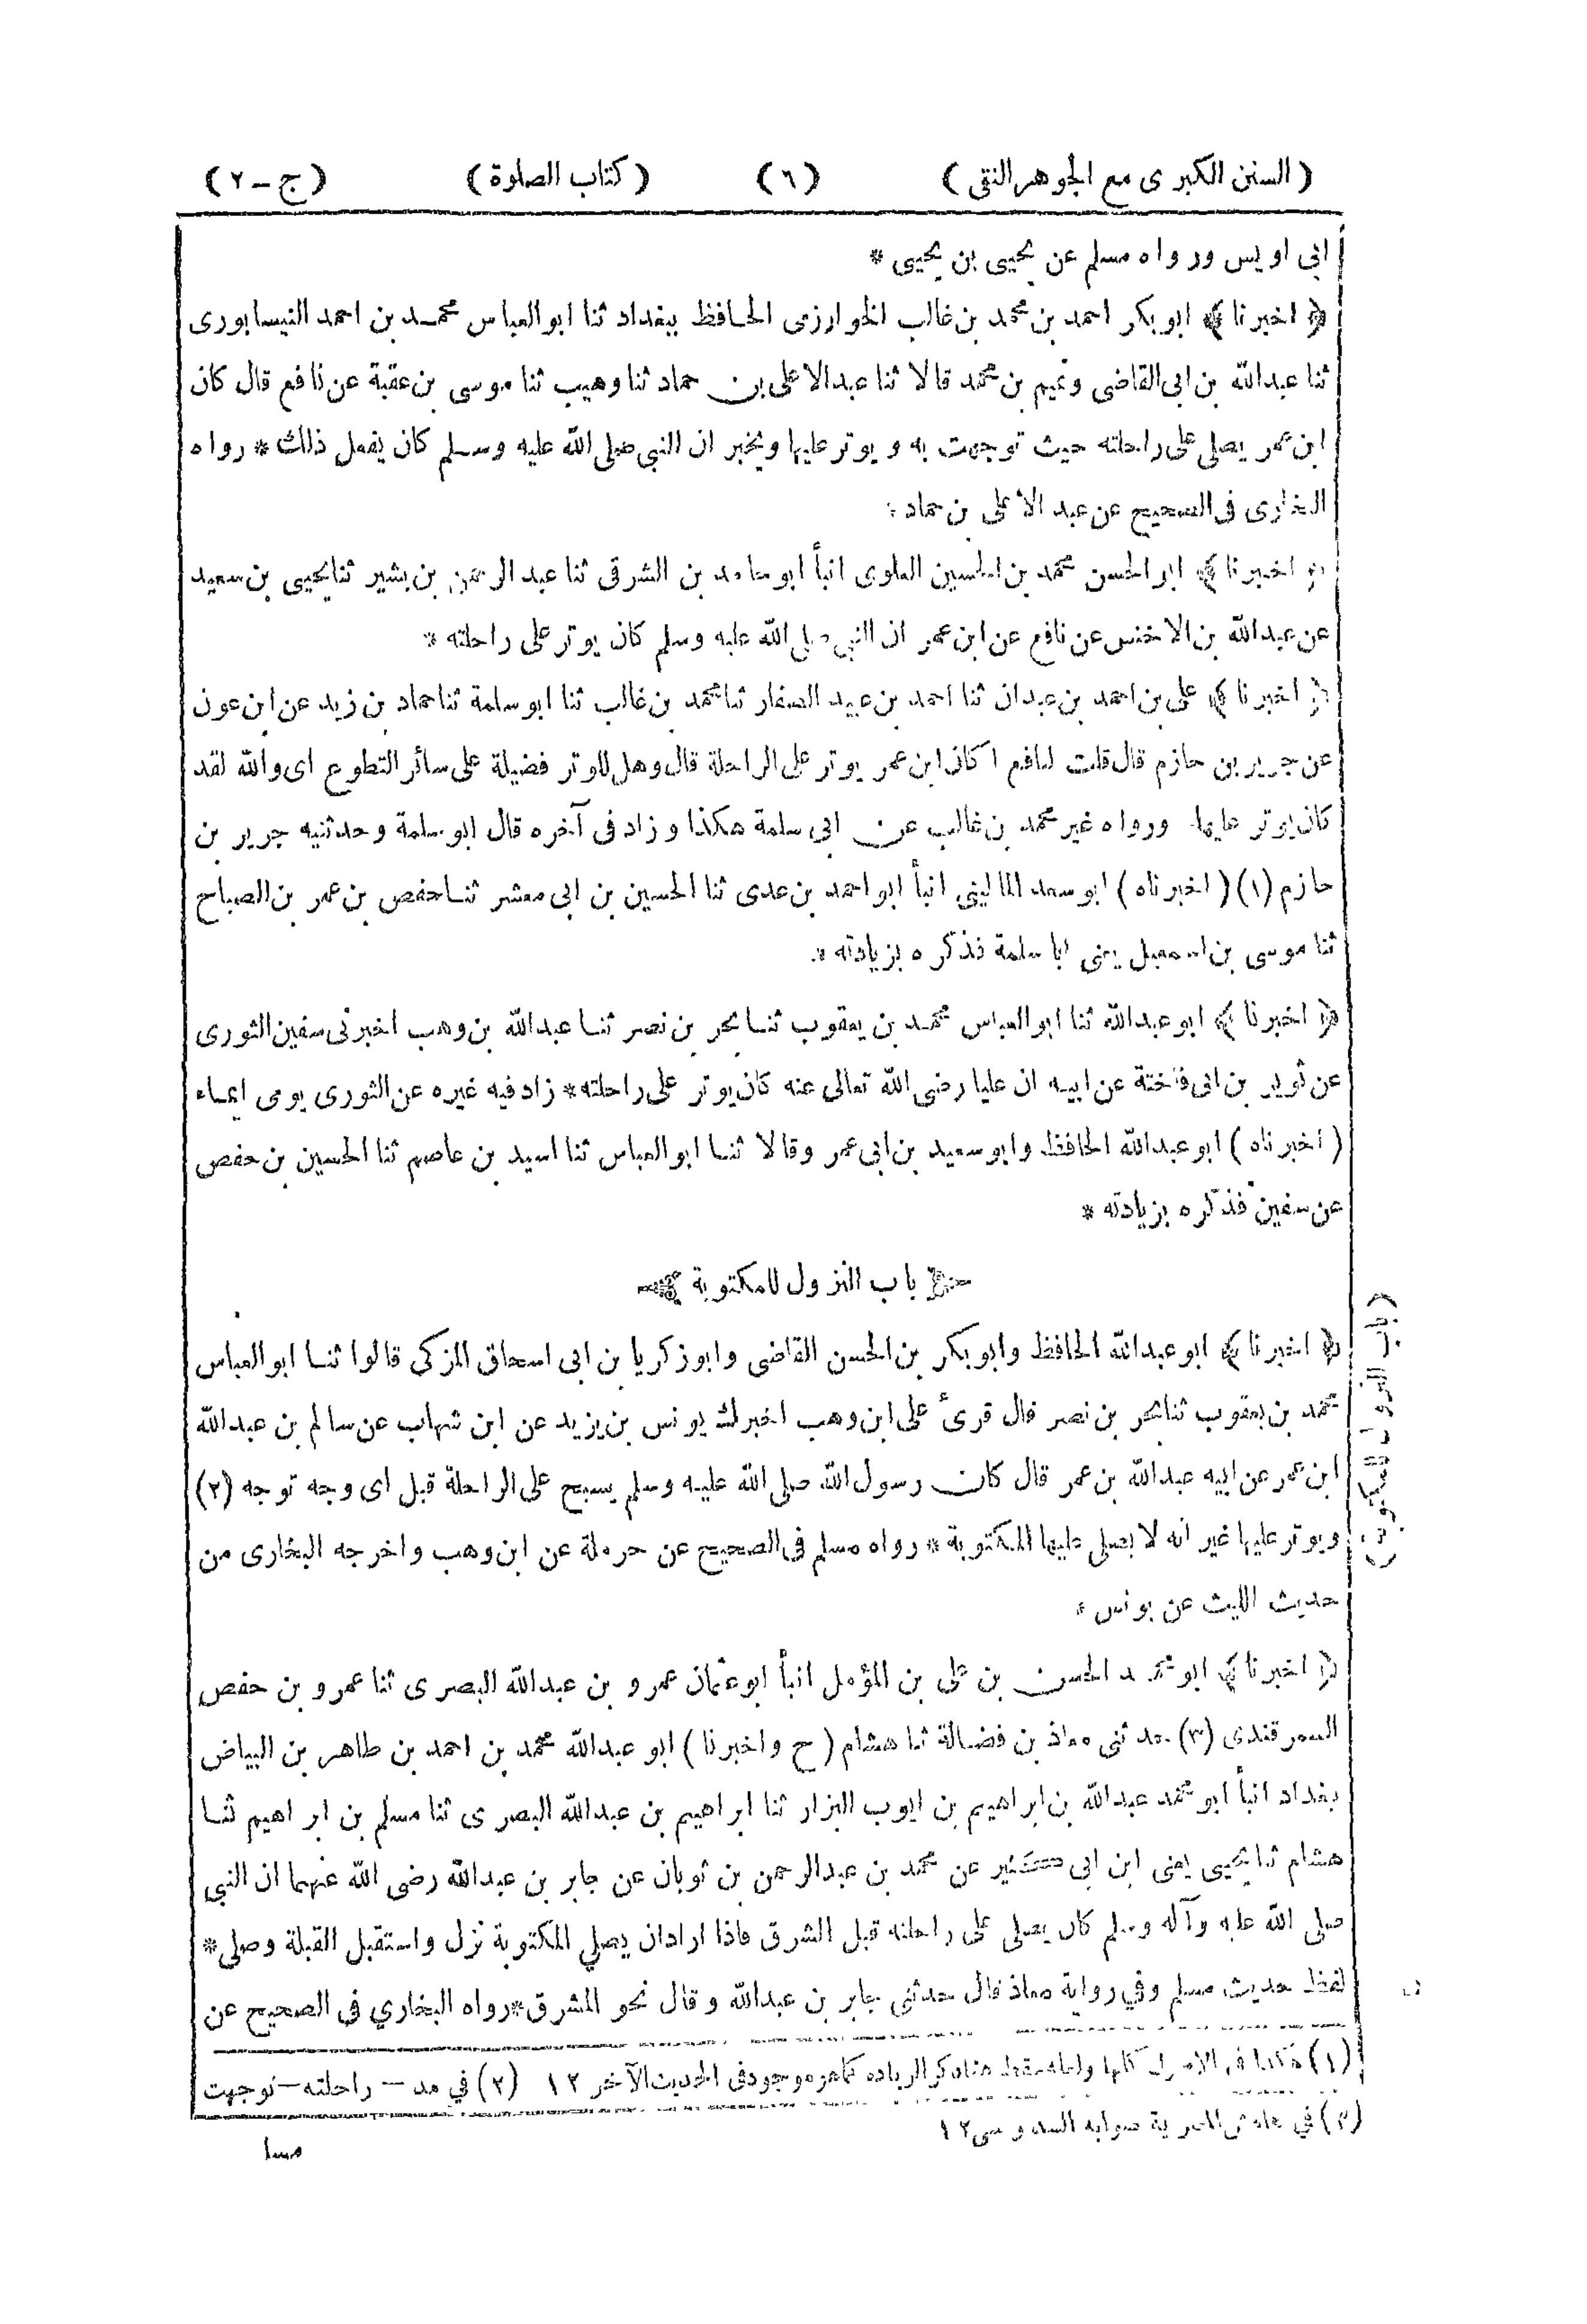 (السنن الكبرى مع الجوهر النقى) (٦) (كتاب الصلوة) (ج-٢)
ابى اويس ورواه مسلم عن يحيى بن يحيى *
﴿اخبرنا﴾ ابو بكر احمد بن محمد بن غالب الخوارزمى الحافظ ببغداد ثنا ابو العباس محمد بن احمد النيسابورى
ثنا عبدالله بن ابى القاضى وتميم بن محمد قالا ثنا عبد الاعلى بن حماد ثنا وهيب ثنا موسى بن عقبة عن نافع قال كان
ابن عمر يصلى على راحلته حيث توجهت به ويوتر عليها ويخبر ان النبى صلى الله عليه وسلم كان يفعل ذلك * رواه
البخارى فى الصحيح عن عبد الأعلى بن حماد *
﴿اخبرنا﴾ ابو الحسن محمد بن الحسين العلوى انبأ ابو حامد بن الشرقى ثنا عبد الرحمن بن بشير ثنا يحيى بن سعيد
عن عبدالله بن الاخنس عن نافع عن ابن عمر ان النبى صلى الله عليه وسلم كان يوتر على راحلته *
﴿اخبرنا﴾ على بن احمد بن عبدان ثنا احمد بن عبيد الصفار ثنا محمد بن غالب ثنا ابو سلمة ثنا حماد بن زيد عن ابن عون
عن جرير بن حازم قال قلت لنافع اكان ابن عمر يوتر على الراحلة قال وهل للوتر فضيلة على سائر التطوع اى والله لقد
كان يوتر عليها ورواه غير محمد بن غالب عن ابى سلمة هكذا وزاد فى آخره قال ابو سلمة وحدثنيه جرير بن
حازم (١) (اخبرناه) ابو سعد المالينى انبأ ابو احمد بن عدى ثنا الحسين بن ابى معشر ثنا حفص بن عمر بن الصباح
ثنا موسى بن اسمعيل يعنى ابا سلمة فذكره بزيادته *
﴿اخبرنا﴾ ابو عبدالله ثنا ابو العباس محمد بن يعقوب ثنا بحر بن نصر ثنا عبدالله بن وهب اخبرنى سفين الثورى
عن ثوير بن ابى فاختة عن ابيه ان عليا رضى الله تعالى عنه كان يوتر على راحلته * زاد فيه غيره عن الثورى يومى ايماء
(اخبرناه) ابو عبدالله الحافظ وابو سعيد بن ابى عمر وقالا ثنا ابو العباس ثنا اسيد بن عاصم ثنا الحسين بن حفص
عن سفين فذكره بزيادته *
باب النزول للمكتوبة
﴿اخبرنا﴾ ابو عبدالله الحافظ وابو بكر بن الحسن القاضى وابو زكريا بن ابى اسحاق المزكى قالوا ثنا ابو العباس
محمد بن يعقوب ثنا بحر بن نصر قال قرئ على ابن وهب اخبرك يونس بن يزيد عن ابن شهاب عن سالم بن عبدالله
ابن عمر عن ابيه عبدالله بن عمر قال كان رسول الله صلى الله عليه وسلم يسبح على الراحلة قبل اى وجه توجه (٢)
ويوتر عليها غير انه لا يصلى عليها المكتوبة * رواه مسلم فى الصحيح عن حرملة عن ابن وهب واخرجه البخارى من
حديث الليث عن يونس *
﴿اخبرنا﴾ ابو محمد الحسن بن على بن المؤمل انبأ ابو عثمان عمرو بن عبدالله البصرى ثنا عمرو بن حفص
السمرقندى (٣) حدثنى معاذ بن فضالة ثنا هشام (ح واخبرنا) ابو عبدالله محمد بن احمد بن طاهر بن البياض
بغداد انبأ ابو محمد عبدالله بن ابراهيم بن ايوب البزار ثنا ابراهيم بن عبدالله البصرى ثنا مسلم بن ابراهيم ثنا
هشام ثنا يحيى يعنى ابن ابى كثير عن محمد بن عبدالرحمن بن ثوبان عن جابر بن عبدالله رضى الله عنهما ان النبى
صلى الله عليه وآله وسلم كان يصلى على راحلته قبل الشرق فاذا ارادان يصلي المكتوبة نزل واستقبل القبلة وصلى *
لفظ حديث مسلم وفي رواية معاذ قال حدثنى جابر بن عبدالله وقال نحو المشرق * رواه البخاري فى الصحيح عن
(باب النزول للمكتوبة)
(١) هكذا فى الاصول كلها ولعله سقط هنا ذكر الزياده كما هو موجود فى الحديث الآخر ١٢ (٢) في مد - راحلته - توجهت
(٣) في هامش المصرية صوابه السدوسى ١٢
مسلم